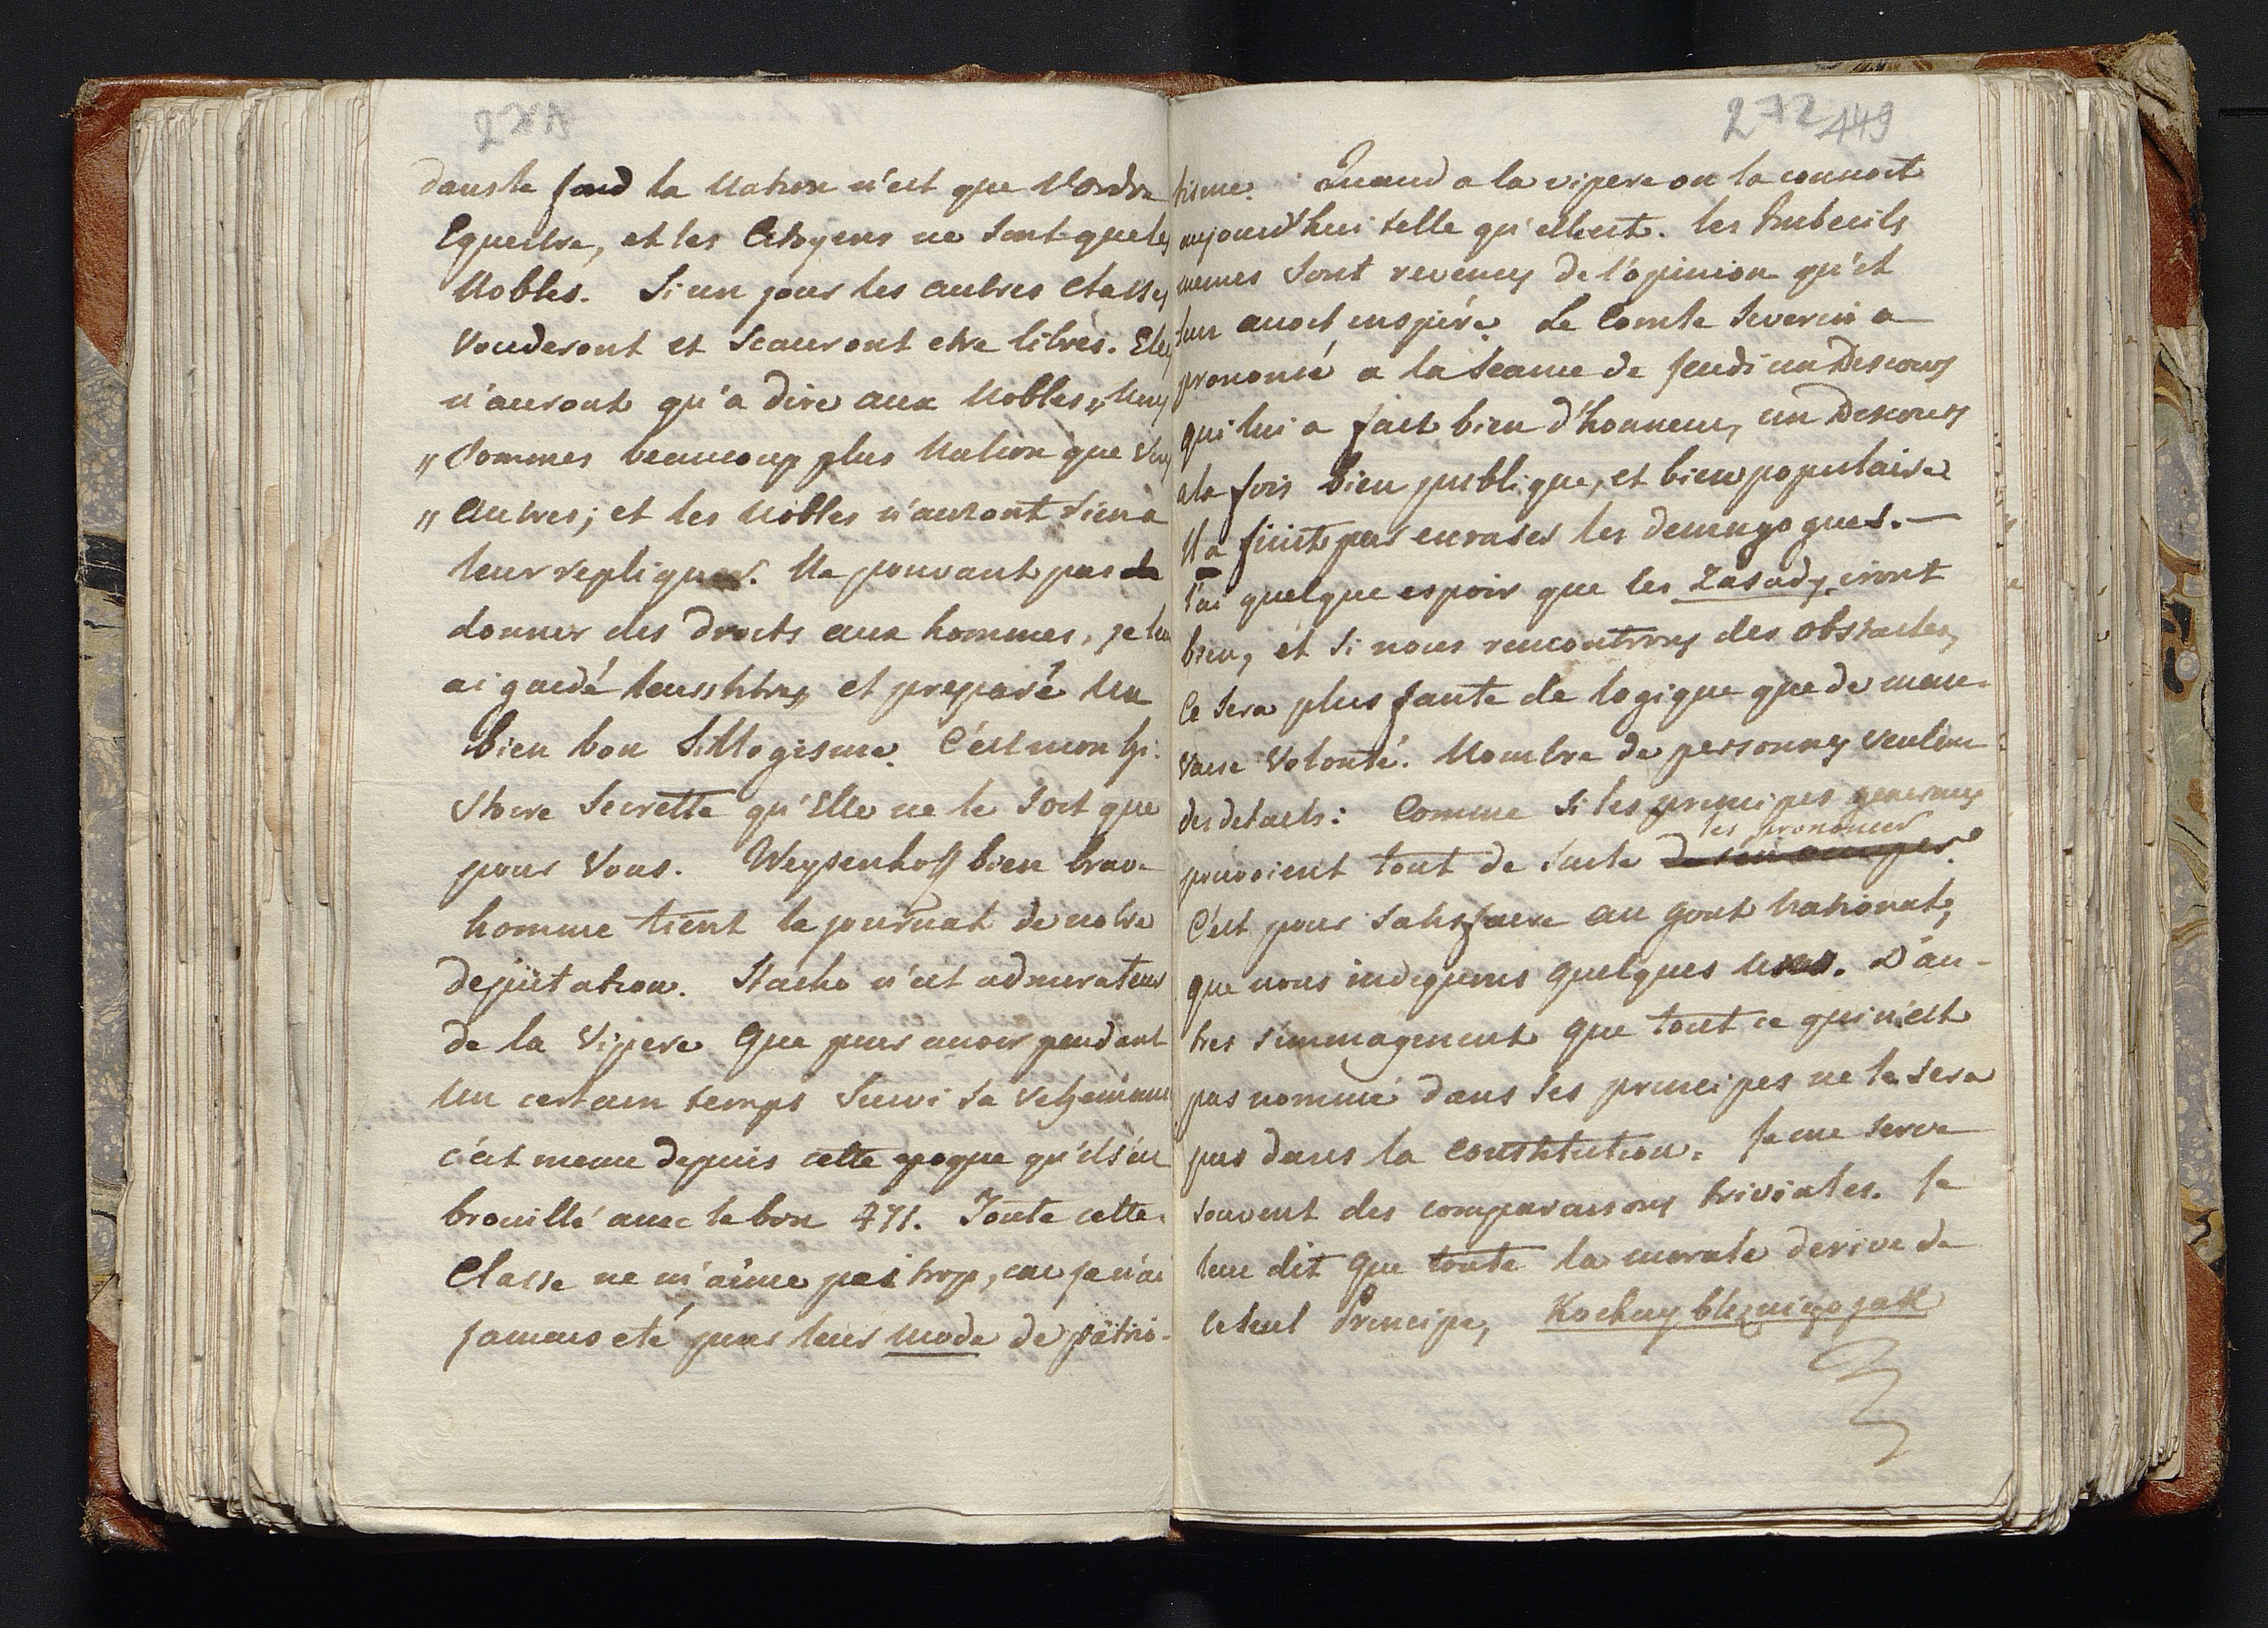 dans le fond la Nation n'est que l'ordre
Equestre, et les Citoyens ne sont que les
Nobles. Si un jour les autres Classes
Vouderont et Scauront etre libres. Eles
n'auront qu'a dire aux Nobles „ Nous
„ Sommes beaucoup plus Nation que Vous
„ Autres; et les Nobles n'auront rien a
leur repliquer. Ne pouvant pas
donner des droits aux hommes, je leur
ai gardé leurs titres, et preparé un
bien bon Sillogisme. C'est mon hi-
stoire Secrette qu'Elle ne le soit que
pour Vous. Weysenhoff bien brave
homme tient le journal de notre
deputation. Stacho n'est admirateur
de la Vipere que pour avoir pendant
un certain temps Suivi sa Vehemence
c'est meme depuis cette epoque qu'il s'est
brouillé avec le bon 471. Toute cette
Classe ne m'aime pas trop, car je n'ai
jamais eté pour leur mode de patrio-
272 449
tisme. Quand a la vipere on la connoit
aujourd'hui telle qu'elle est. les Imbecils
memes sont revenus de l'opinion qu'il
leur avoit inspiré. Le Comte Severin a
prononcé a la Seance de Jeudi un Descours
qui lui a fait bien d'honneur, un Descours
a la fois bien publique, et bien populaire
Il a finit par ecraser les demagogues. —
J'ai quelque espoir que les Zasady iront
bien, et si nous rencontrons des obstacles,
Ce sera plus faute de logique que de mau-
vaise Volonté. Nombre de personnes veulent
des details: Comme si les principes generaux
les prononcer
pouvoient tout de suite de s'en occuper.
C'est pour satisfaire au gout national,
que nous indiquons quelques uns. D'au-
tres s'immaginent que tout ce qui n'est
pas nommé dans les principes ne le sera
pas dans la constitution. Je me serve
souvent des comparaisons triviales. Je
leur dit que toute la morale derive de
ce seul Principe, Kochay bliźniego jak